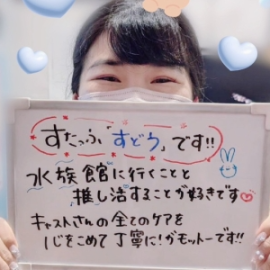 すたっふ「すどう」です!!
水族館に行くことと
推し活することが好きです
キャストさんの全てのケアを
心をこめて丁寧に!がモットーです!!